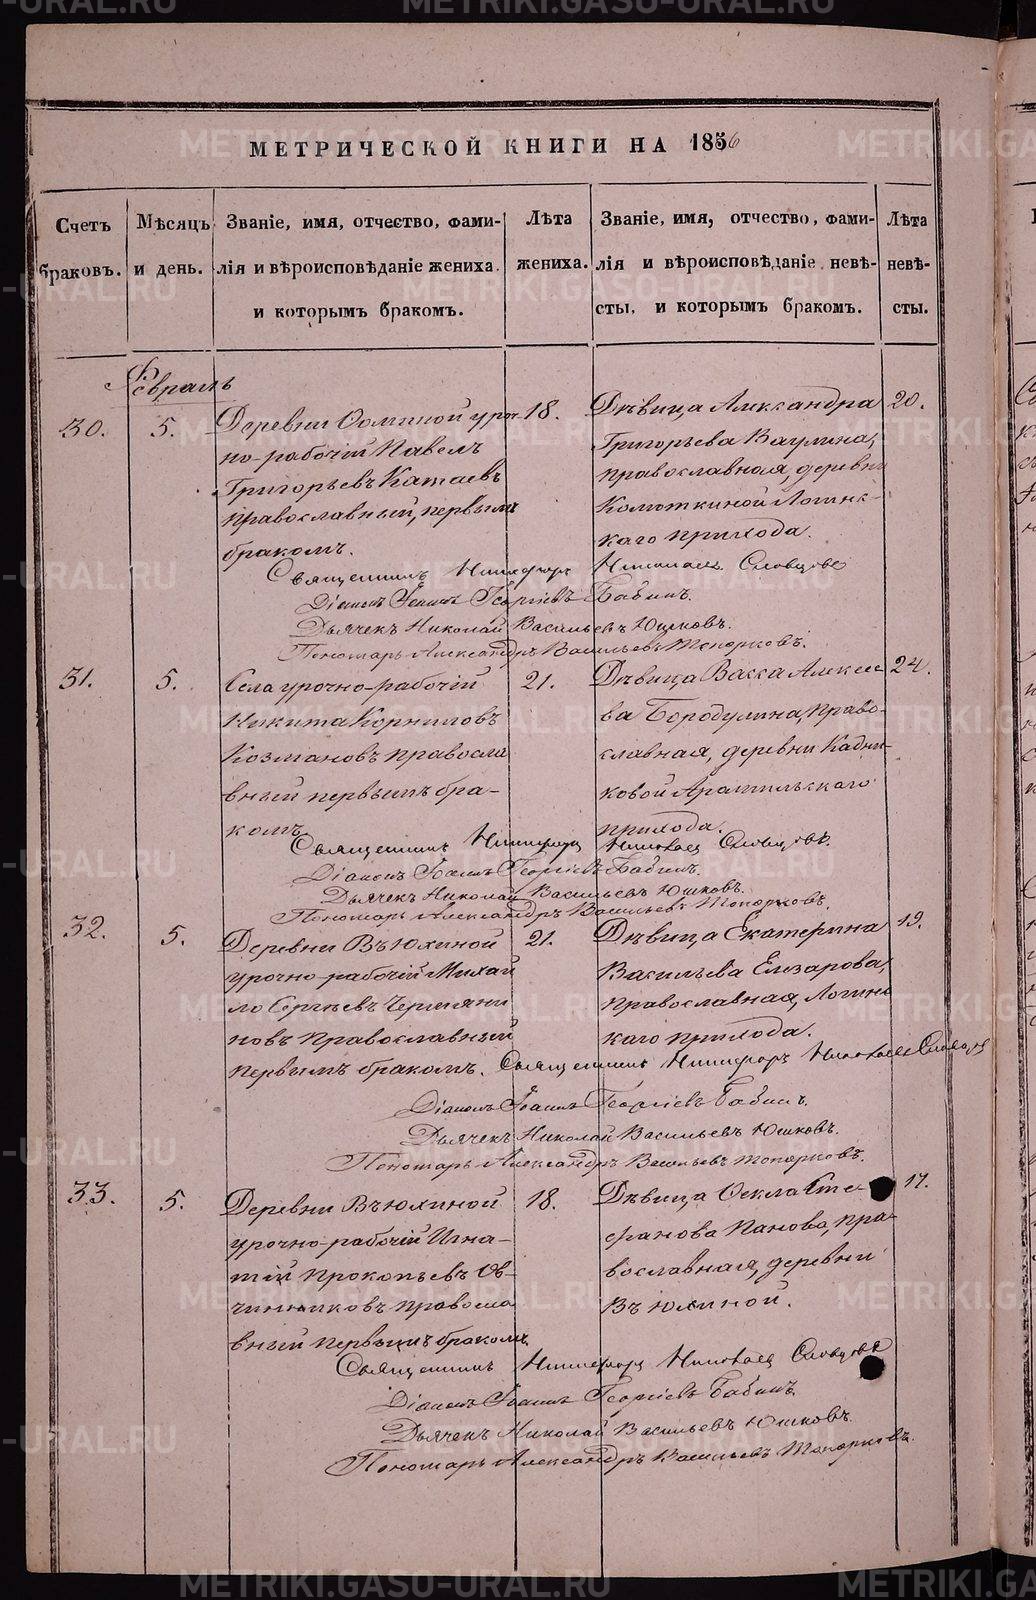 МЕТРИЧЕСКОЙ КНИГИ НА 1856
Счетъ браковъ.
Мѣсяцъ и день.
Званіе, имя, отчество, фамилія и вѣроисповѣданіе жениха и которымъ бракомъ.
Лѣта жениха.
Званіе, имя, отчество, фамилія и вѣроисповѣданіе невѣсты, и которымъ бракомъ.
Лѣта невѣсты.
Февраль
30.
5.
Деревни Ѳоминой уроч
но-рабочій Павелъ
Григорьевъ Катаевъ
православный, первымъ
бракомъ.
18.
Дѣвица Александра
Григорьева Ваулина,
православная, деревни
Колюткиной Логинс-
каго прихода.
20.
Священникъ Никифоръ Николаевъ Словцовъ
Діаконъ Іоаннъ Георгіевъ Бабинъ.
Дьячекъ Николай Васильевъ Юшковъ.
Пономарь Александръ Васильевъ Топорковъ.
31.
5.
Села урочно-рабочій
Никита Корниловъ
Козмановъ правосла
вный первымъ бра-
комъ
21.
Дѣвица Васса Алексѣе
ва Бородулина, право-
славная, деревни Кадни-
ковой Арамильскаго
прихода.
24.
Священникъ Никифоръ Николаевъ Словцовъ.
Діаконъ Іоаннъ Георгіевъ Бабинъ.
Дьячекъ Николай Васильевъ Юшковъ.
Пономарь Александръ Васильевъ Топорковъ.
32.
5.
Деревни Вьюхиной
урочно-рабочій Михай
ло Сергѣевъ Чермяни
новъ Православный
первымъ бракомъ.
21.
Дѣвица Екатерина
Васильева Елизарова,
православная, Логинс
каго прихода.
19.
Священникъ Никифоръ Николаевъ Словцовъ
Діаконъ Іоаннъ Георгіевъ Бабинъ.
Дьячекъ Николай Васильевъ Юшковъ.
Пономарь Александръ Васильевъ Топорковъ.
33.
5.
Деревни Вьюхиной
урочно-рабочій Игна-
тій Прокопьевъ Ов-
чинниковъ правосла
вный первымъ бракомъ.
18.
Дѣвица Ѳекла Сте
фанова Панова, пра-
вославная, деревни
Вьюхиной.
17.
Священникъ Никифоръ Николаевъ Словцовъ
Діаконъ Іоаннъ Георгіевъ Бабинъ.
Дьячекъ Николай Васильевъ Юшковъ.
Пономарь Александръ Васильевъ Топорковъ.
METRIKI.GASO-URAL.RU